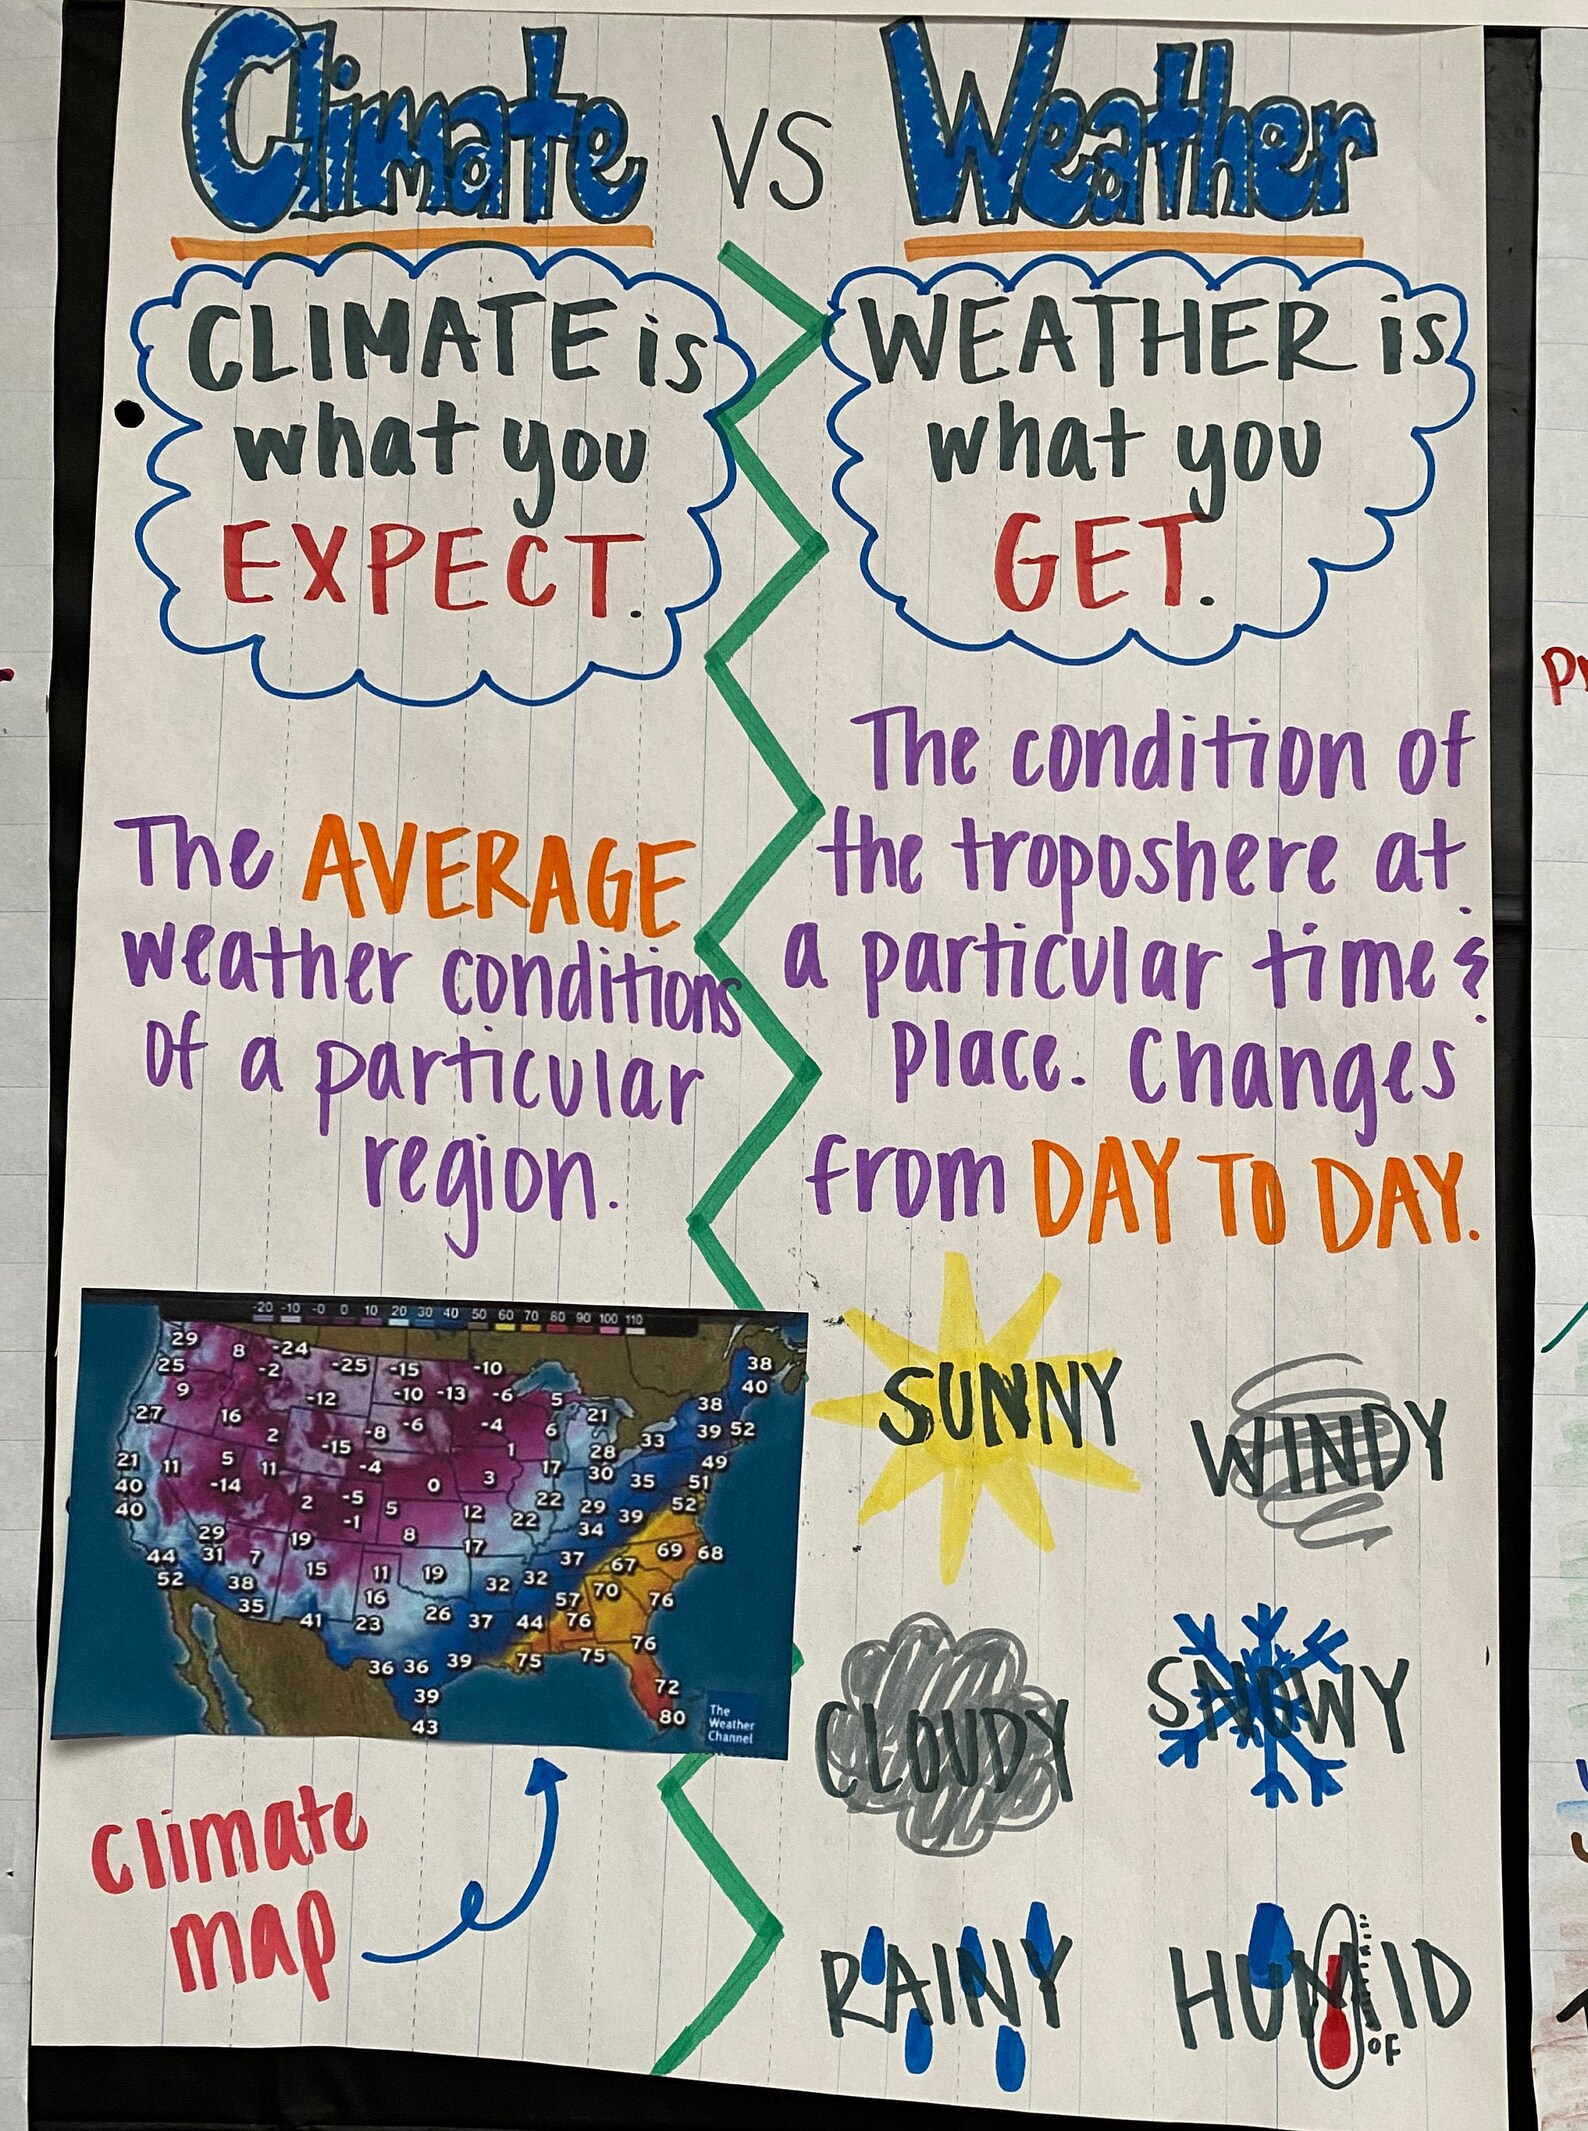 Climate vs Weather
CLIMATE is
what you
EXPECT.
The AVERAGE
weather conditions
of a particular
region.
-20 -10 -0 0 10 20 30 40 50 60 70 80 90 100 110
29 8 -24 -25 -15 -10 38
25 -2 40
9 -12 -10 -13 -6 5 38
27 16 2 -8 -6 -4 6 21 33 39 52
21 11 5 11 -15 -4 1 17 28 49
40 -14 0 3 30 35 51
40 2 -5 5 12 22 29 39 52
-1 8 22 34
29 19 17 69 68
44 31 7 15 11 19 37 67
52 38 16 32 32 57 70 76
35 41 23 26 37 44 76
36 36 39 75 75 76
39 72
43 80
The
Weather
Channel
climate
map
WEATHER is
what you
GET.
The condition of
the troposhere at
a particular time &
place. Changes
from DAY TO DAY.
SUNNY
WINDY
CLOUDY
SNOWY
RAINY
HUMID
°F
Pr